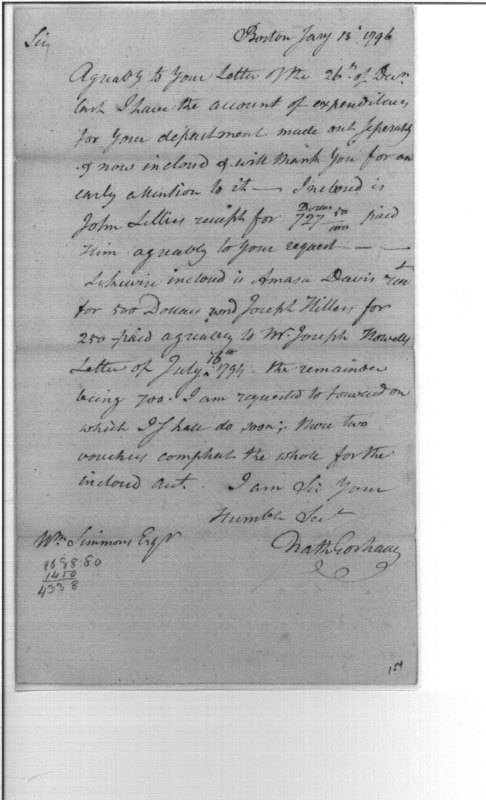 Boston Jany 13th 1796
Sir
Agreably to Your Letter of the 26th of Decr
last I have the account of expenditures
for Your department made out seperately
& now inclosd & will thank You for an
early attention to it — Inclosed is
John Lillies receipt for Dollars 727 50/100 paid
him agreably to Your request — —
Likewise inclosd is Amasa Davis rect
for 500 Dollars and Joseph Hillers for
250 paid agreably to Mr. Joseph Howells
Letter of July 16th 1794. the remainder
being 700. I am requested to forward on
which I shall do soon; these two
vouchers compleat the whole for the
inclosd act. I am Sir Your
Humble Sert
Nath Gorham
Wm Simmons Esqr
1450
4338
154